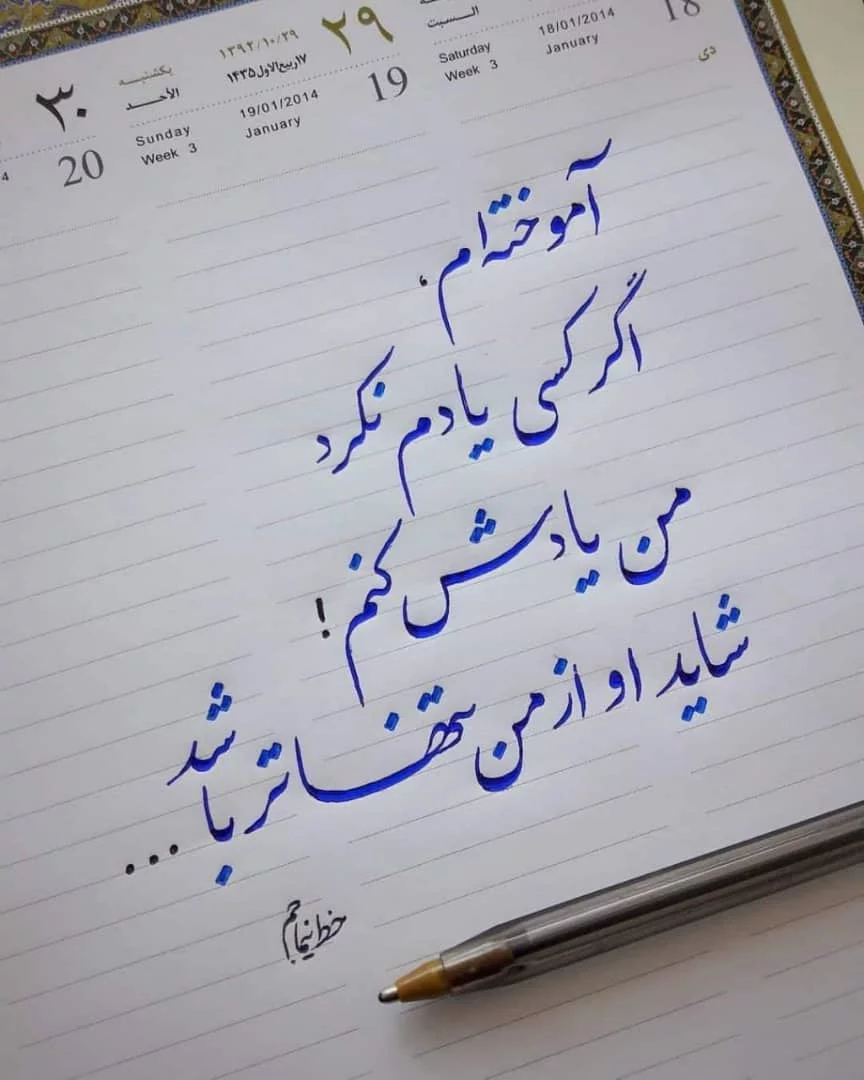 18
18/01/2014
January
السبت
Saturday
Week 3
دی
۲۹
۱۳۹۲/۱۰/۲۹
۱۷ربیع‌الاول۱۴۳۵
19
19/01/2014
January
یکشنبـه
الأحـد
Sunday
Week 3
۳۰
20
4
آموخته ام،
اگر کسی یادم نکرد
من یادش کنم!
شاید او از من تنهاتر باشد...